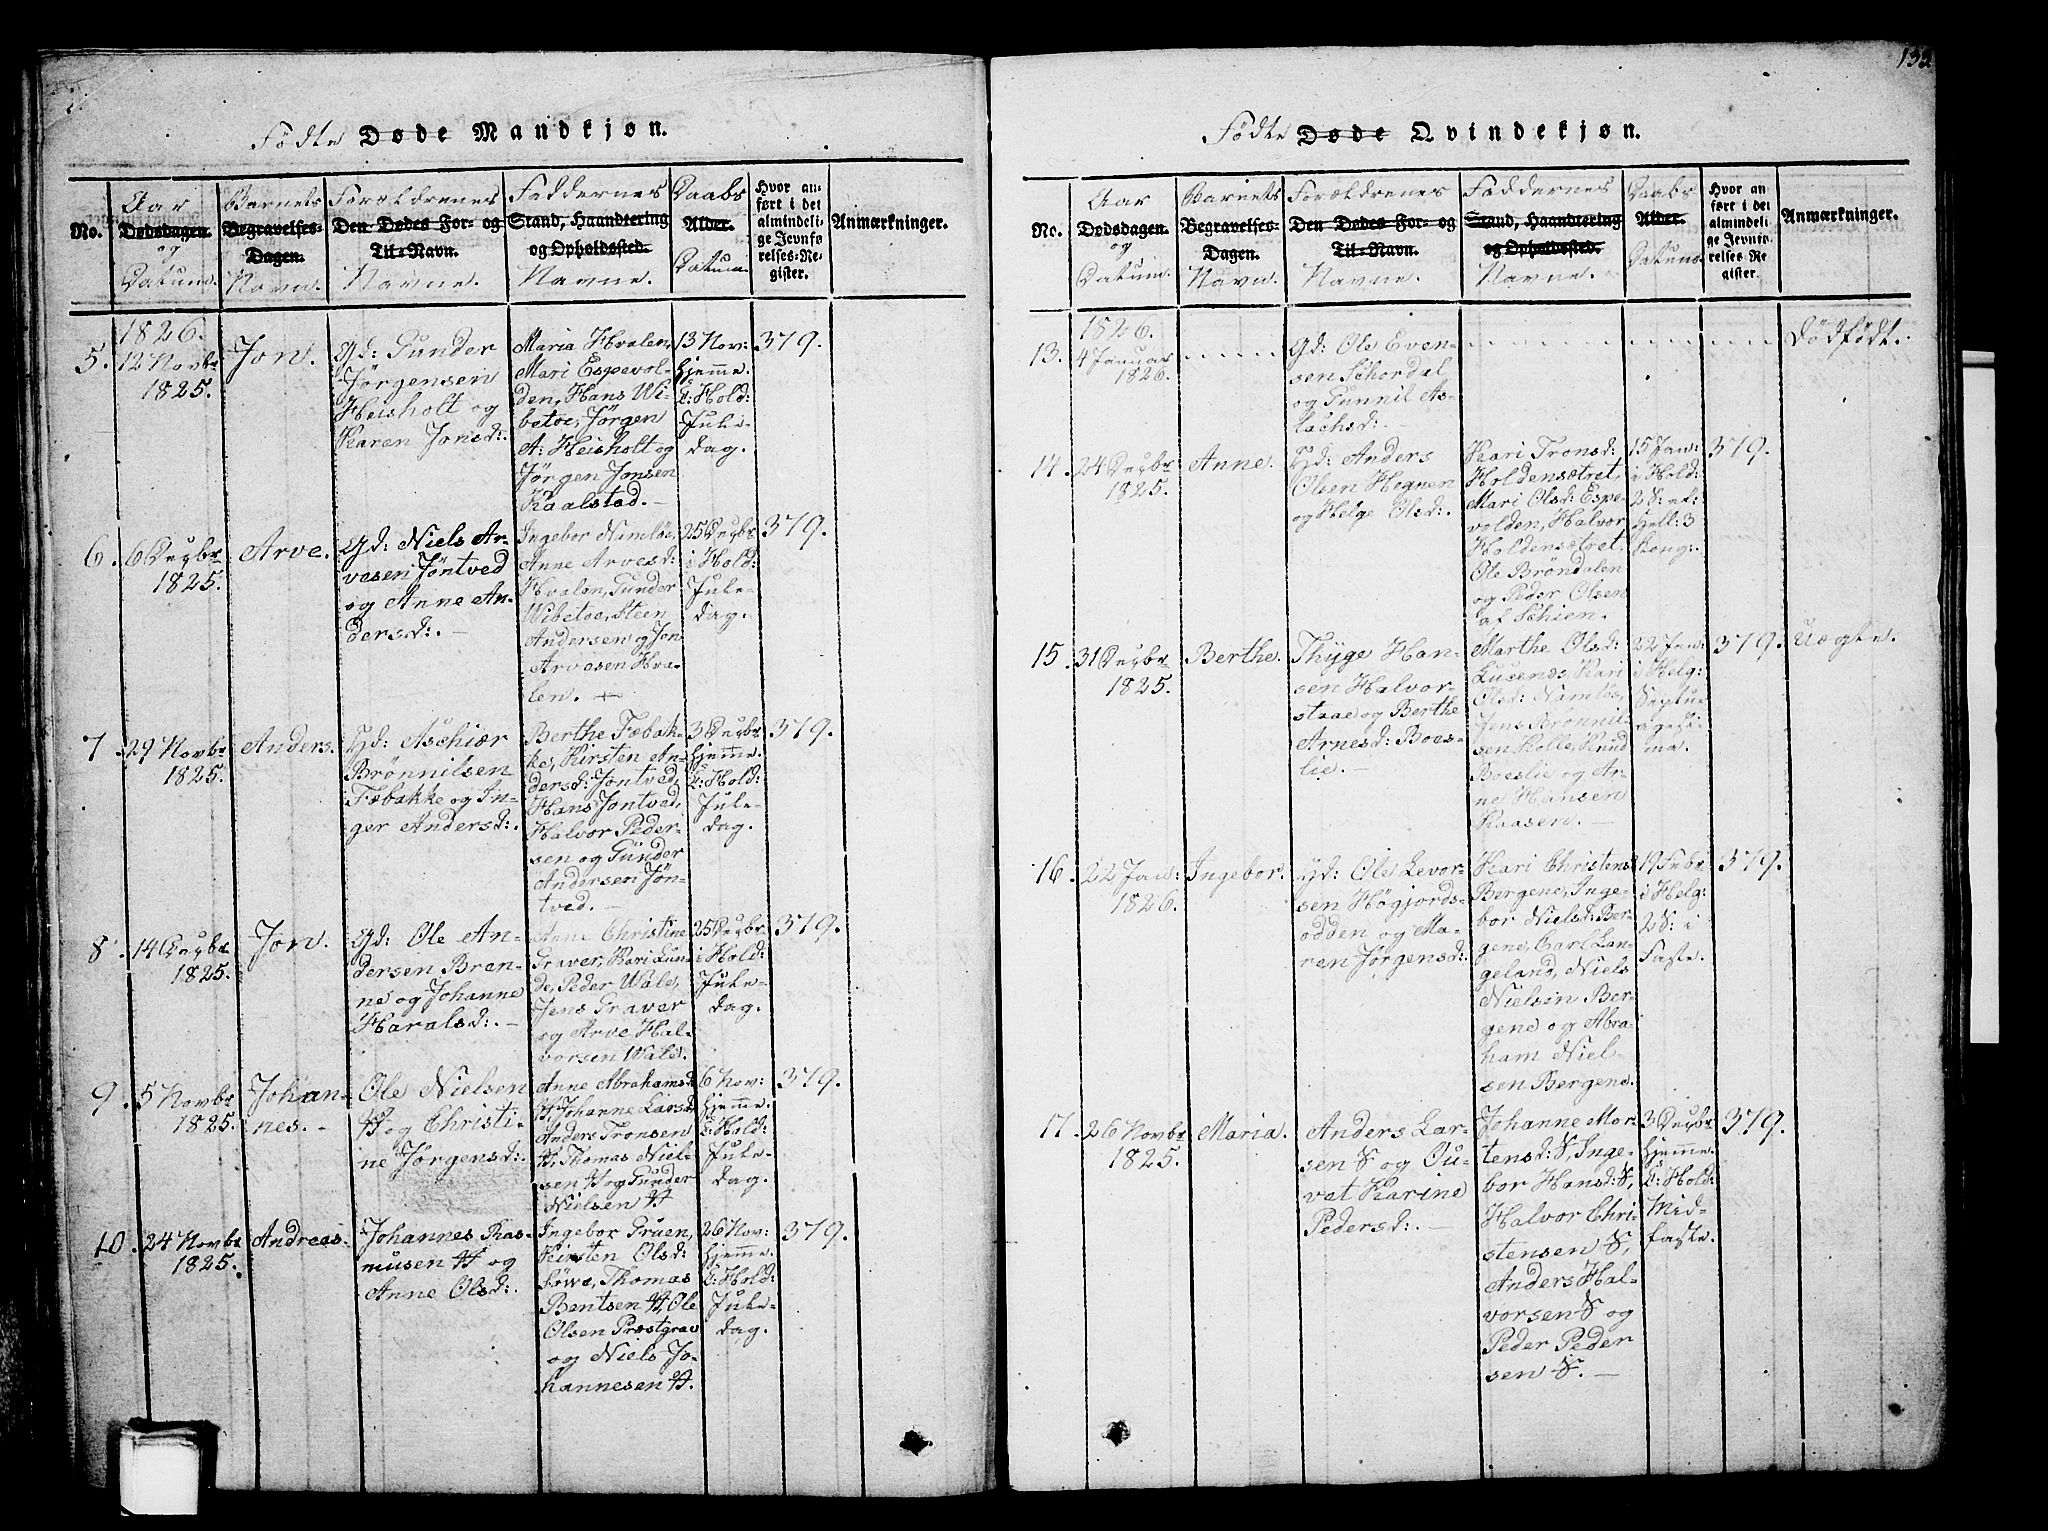 Fødte Døde Mandkjøn.
No.
Aar Dødsdagen. og Datum.
Barnets Begravelses-Dagen. Navn.
Forældrenes Den Dødes For- og Til-Navn. Navne.
Faddernes Stand, Haandtering og Opholdssted. Navne.
Daabs Alder. Datum.
Hvor anført i det almindelige Jevnførelses-Register.
Anmærkninger.
1826.
5. 12 Novbr 1825.
Jon.
Gd: Gunder
Jørgensen
Heisholt og
Karen Jonsd:
Maria Hvalen,
Mari Espevol-
den, Hans Wi-
betoe, Jørgen
A: Heisholt og
Jørgen Jonsen
Kaalstad. -
13 Nov:
hjemme.
i Hold:
Jule-
dag.
379.
6. 6 Decbr 1825.
Arve.
Gd: Niels Ar-
vesen Jøntved
og Anne An-
dersd:. -
Ingebor Numløs,
Anne Arvesd:
Hvalen, Gunder
Wibetoe, Steen
Andersen og Jon
Arvesen Hva-
len. -
25 Decbr
i Hold:
Jule-
dag.
379.
7. 29 Novbr 1825.
Anders.
Hd: Aschier
Brønnilsen
Fæbakke og In-
ger Andersd:.
Berthe Fæbak-
ke, Kirsten An-
dersd: Jontved,
Hans Jontved,
Halvor Peder-
sen og Gunder
Andersen Jøn-
tved. -
3 Decbr
hjemme.
i Hold:
Jule-
dag.
379.
8. 14 Decbr 1825.
Jon.
Gd: Ole An-
dersen Bræn-
ne og Johanne
Haralsd:. -
Anne Christine
Graver, Kari Lun-
de, Peder Wale,
Jens Graver
og Arve Hal-
vorsen Wale.
25 Decbr
i Hold:
Jule-
dag.
379.
9. 5 Novbr 1825.
Johan-
nes. -
Ole Nielsen
H og Christi-
ne Jørgensd:.
Anne Abrahamsd:
H, Johanne Larsd:
Anders Tronsen
H, Thomas Niel-
sen H og Gunder
Nielsen H
6 Nov:
hjemme.
i Hold:
Jule-
dag.
379.
10. 24 Novbr 1825.
Andreas.
Johannes Ras-
musen H og
Anne Olsd:.
Ingebor Gruen,
Kirsten Olsd:
Thomas
Bentsen H, Ole
Olsen Præstgrav
og Niels Jo-
hannesen H.
26 Nov:
hjemme.
i Hold:
Jule-
dag.
379.
132
Fødte Døde Qvindekjøn.
No.
Aar Dødsdagen. og Datum.
Barnets Begravelses-Dagen. Navn.
Forældrenes Den Dødes For- og Til-Navn. Navne.
Faddernes Stand, Haandtering og Opholdssted. Navne.
Daabs Alder. Datum.
Hvor anført i det almindelige Jevnførelses-Register.
Anmærkninger.
1826.
13. 4 Januar 1826.
Gd: Ole Even-
sen Schordal
og Gunnil As-
lachsd:. -
Dødfødt.
14. 24 Decbr 1825.
Anne.
Hd: Anders
Olsen Hegnen
og Helge Olsd:.
Kari Tronsd:
Holdensætret,
Mari Olsd: Espe-
volden, Halvor
Holdensætret,
Ole Brøndalen
og Peder Olsen
af Schien.
15 Jan:
i Hold:
2 S: ef:
Hell: 3
Kong:.
379.
15. 31 Decbr 1825.
Berthe.
Thyge Han-
sen Halvor-
staae og Berthe
Arnesd: Boes-
lie. -
Marthe Olsd:
Kari
Olsd: Namløs,
Jens Brønnil-
sen Kolle, Knud
Boeslie og Ar-
ne Hansen
Kaasen. -
22 Jan:
i Helg:
Septua-
gesi-
ma.
379.
Uægte.
16. 22 Jan: 1826.
Ingebor.
Gd: Ole Levor-
sen Høgjords-
odden og Ma-
ren Jørgensd:
Kari Christensd:
Bergene, Inge-
bor Nielsd: Ber-
gene, Carl Lan-
geland, Niels
Nielsen Ber-
gene og Abra-
ham Niel-
sen Bergene.
19 Febr
i Helg:
2 S: i
Faste.
379.
17. 26 Novbr 1825.
Maria.
Anders Lar-
sen S og Ou-
vet Karine
Pedersd:. -
Johanne Mor-
tensd: S, Inge-
bor Hansd: S,
Halvor Chri-
stensen S,
Anders Hal-
vorsen S og
Peder Peder
sen S. -
3 Decbr
hjemme.
i Hold:
Mid-
faste.
379.